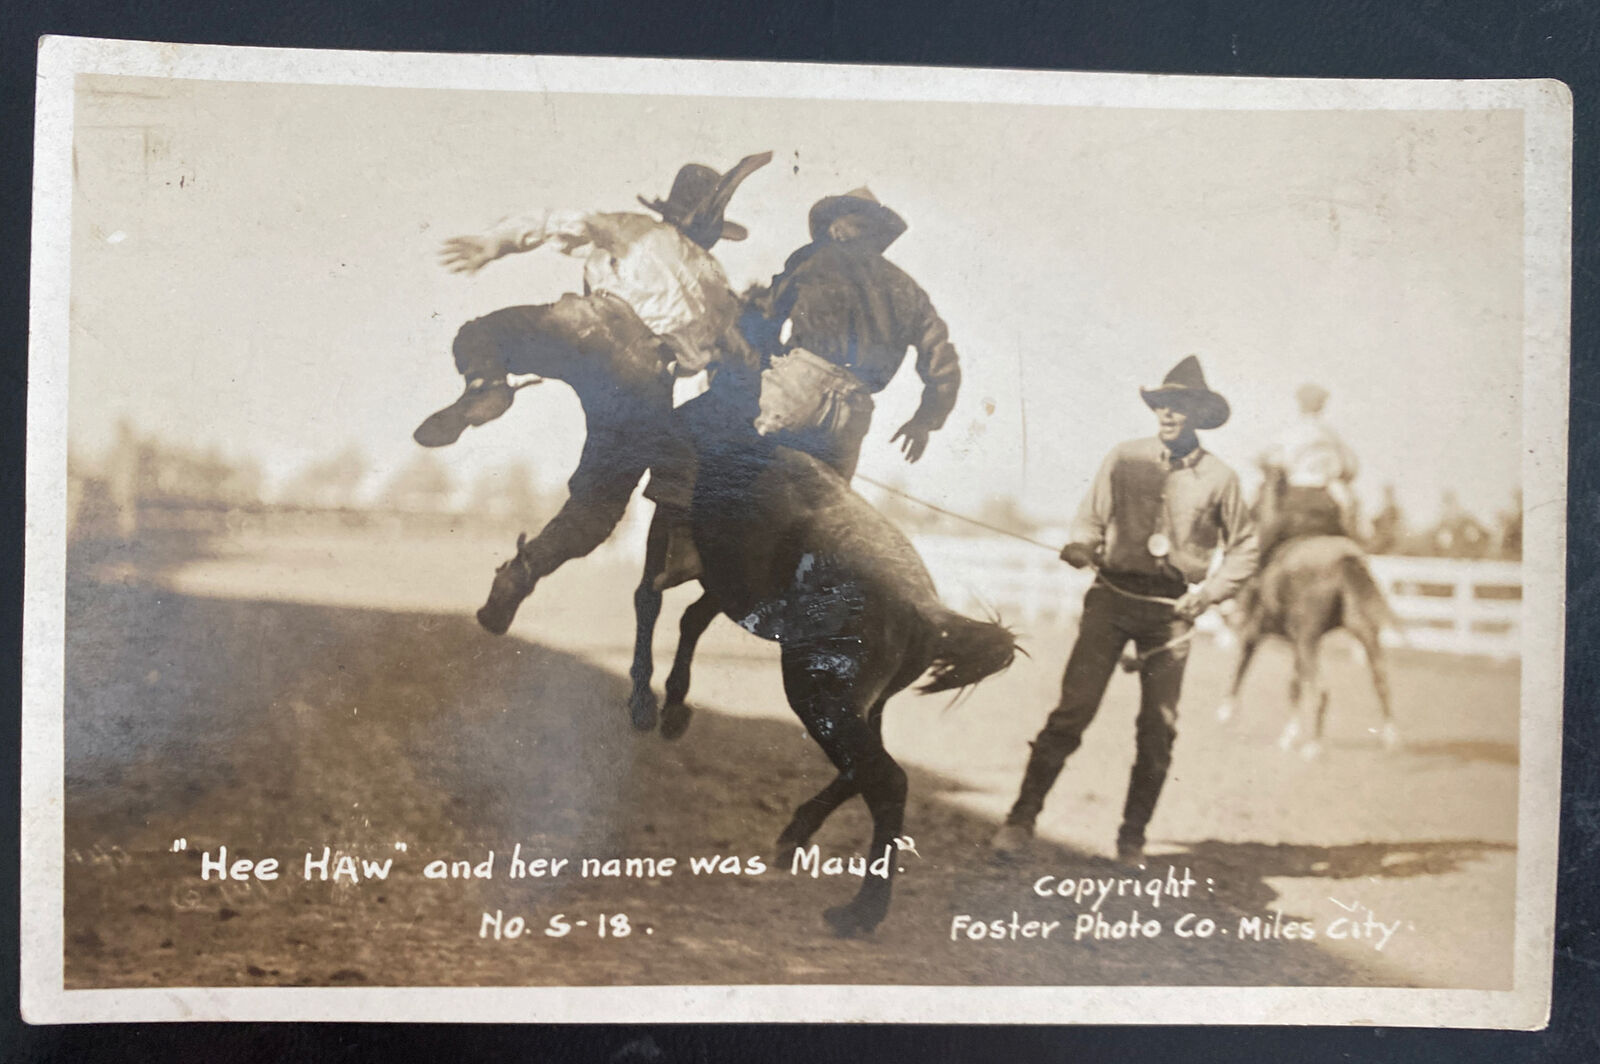 "Hee HAW" and her name was Maud."
No. S-18.
Copyright:
Foster Photo Co. Miles City.